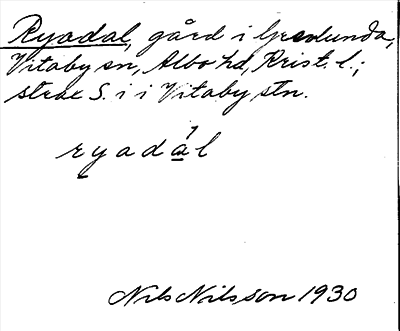 Ryadal, gård i Grevlunda,
Vitaby sn, Albo hd, Krist. l.;
strax S. i i Vitaby stn.
ryadal
Nils Nilsson 1930